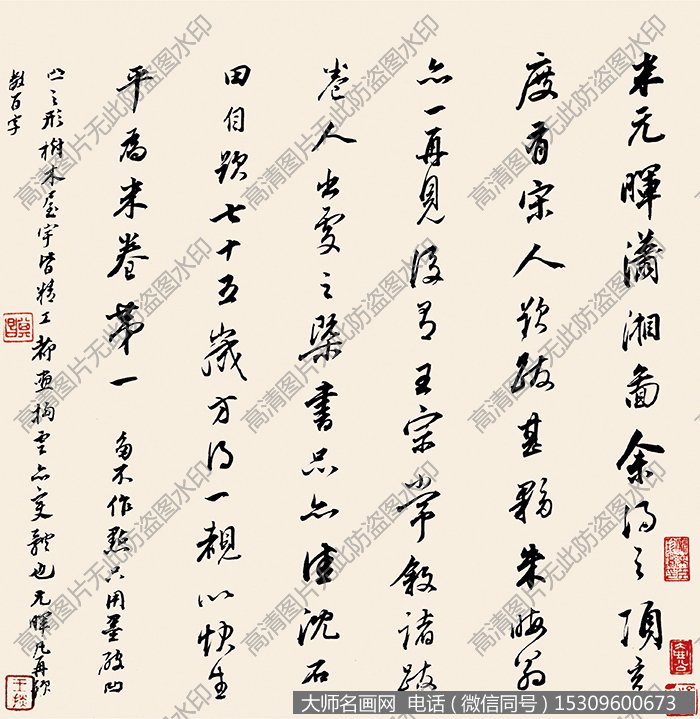 米元暉瀟湘圖余得之項玄
度有宋人題跋甚夥朱晦翁
亦一再見後有王宗常敘諸跋
卷人出處之槩書品亦佳沈石
田自題七十五歲方得一覩以快生
平為米卷第一 不作點只用墨破凹
凸之形樹木屋宇皆精工 雲亦变體也元暉凡再題
數百字
高清图片无此防盗图水印
大师名画网 电话（微信同号）15309600673